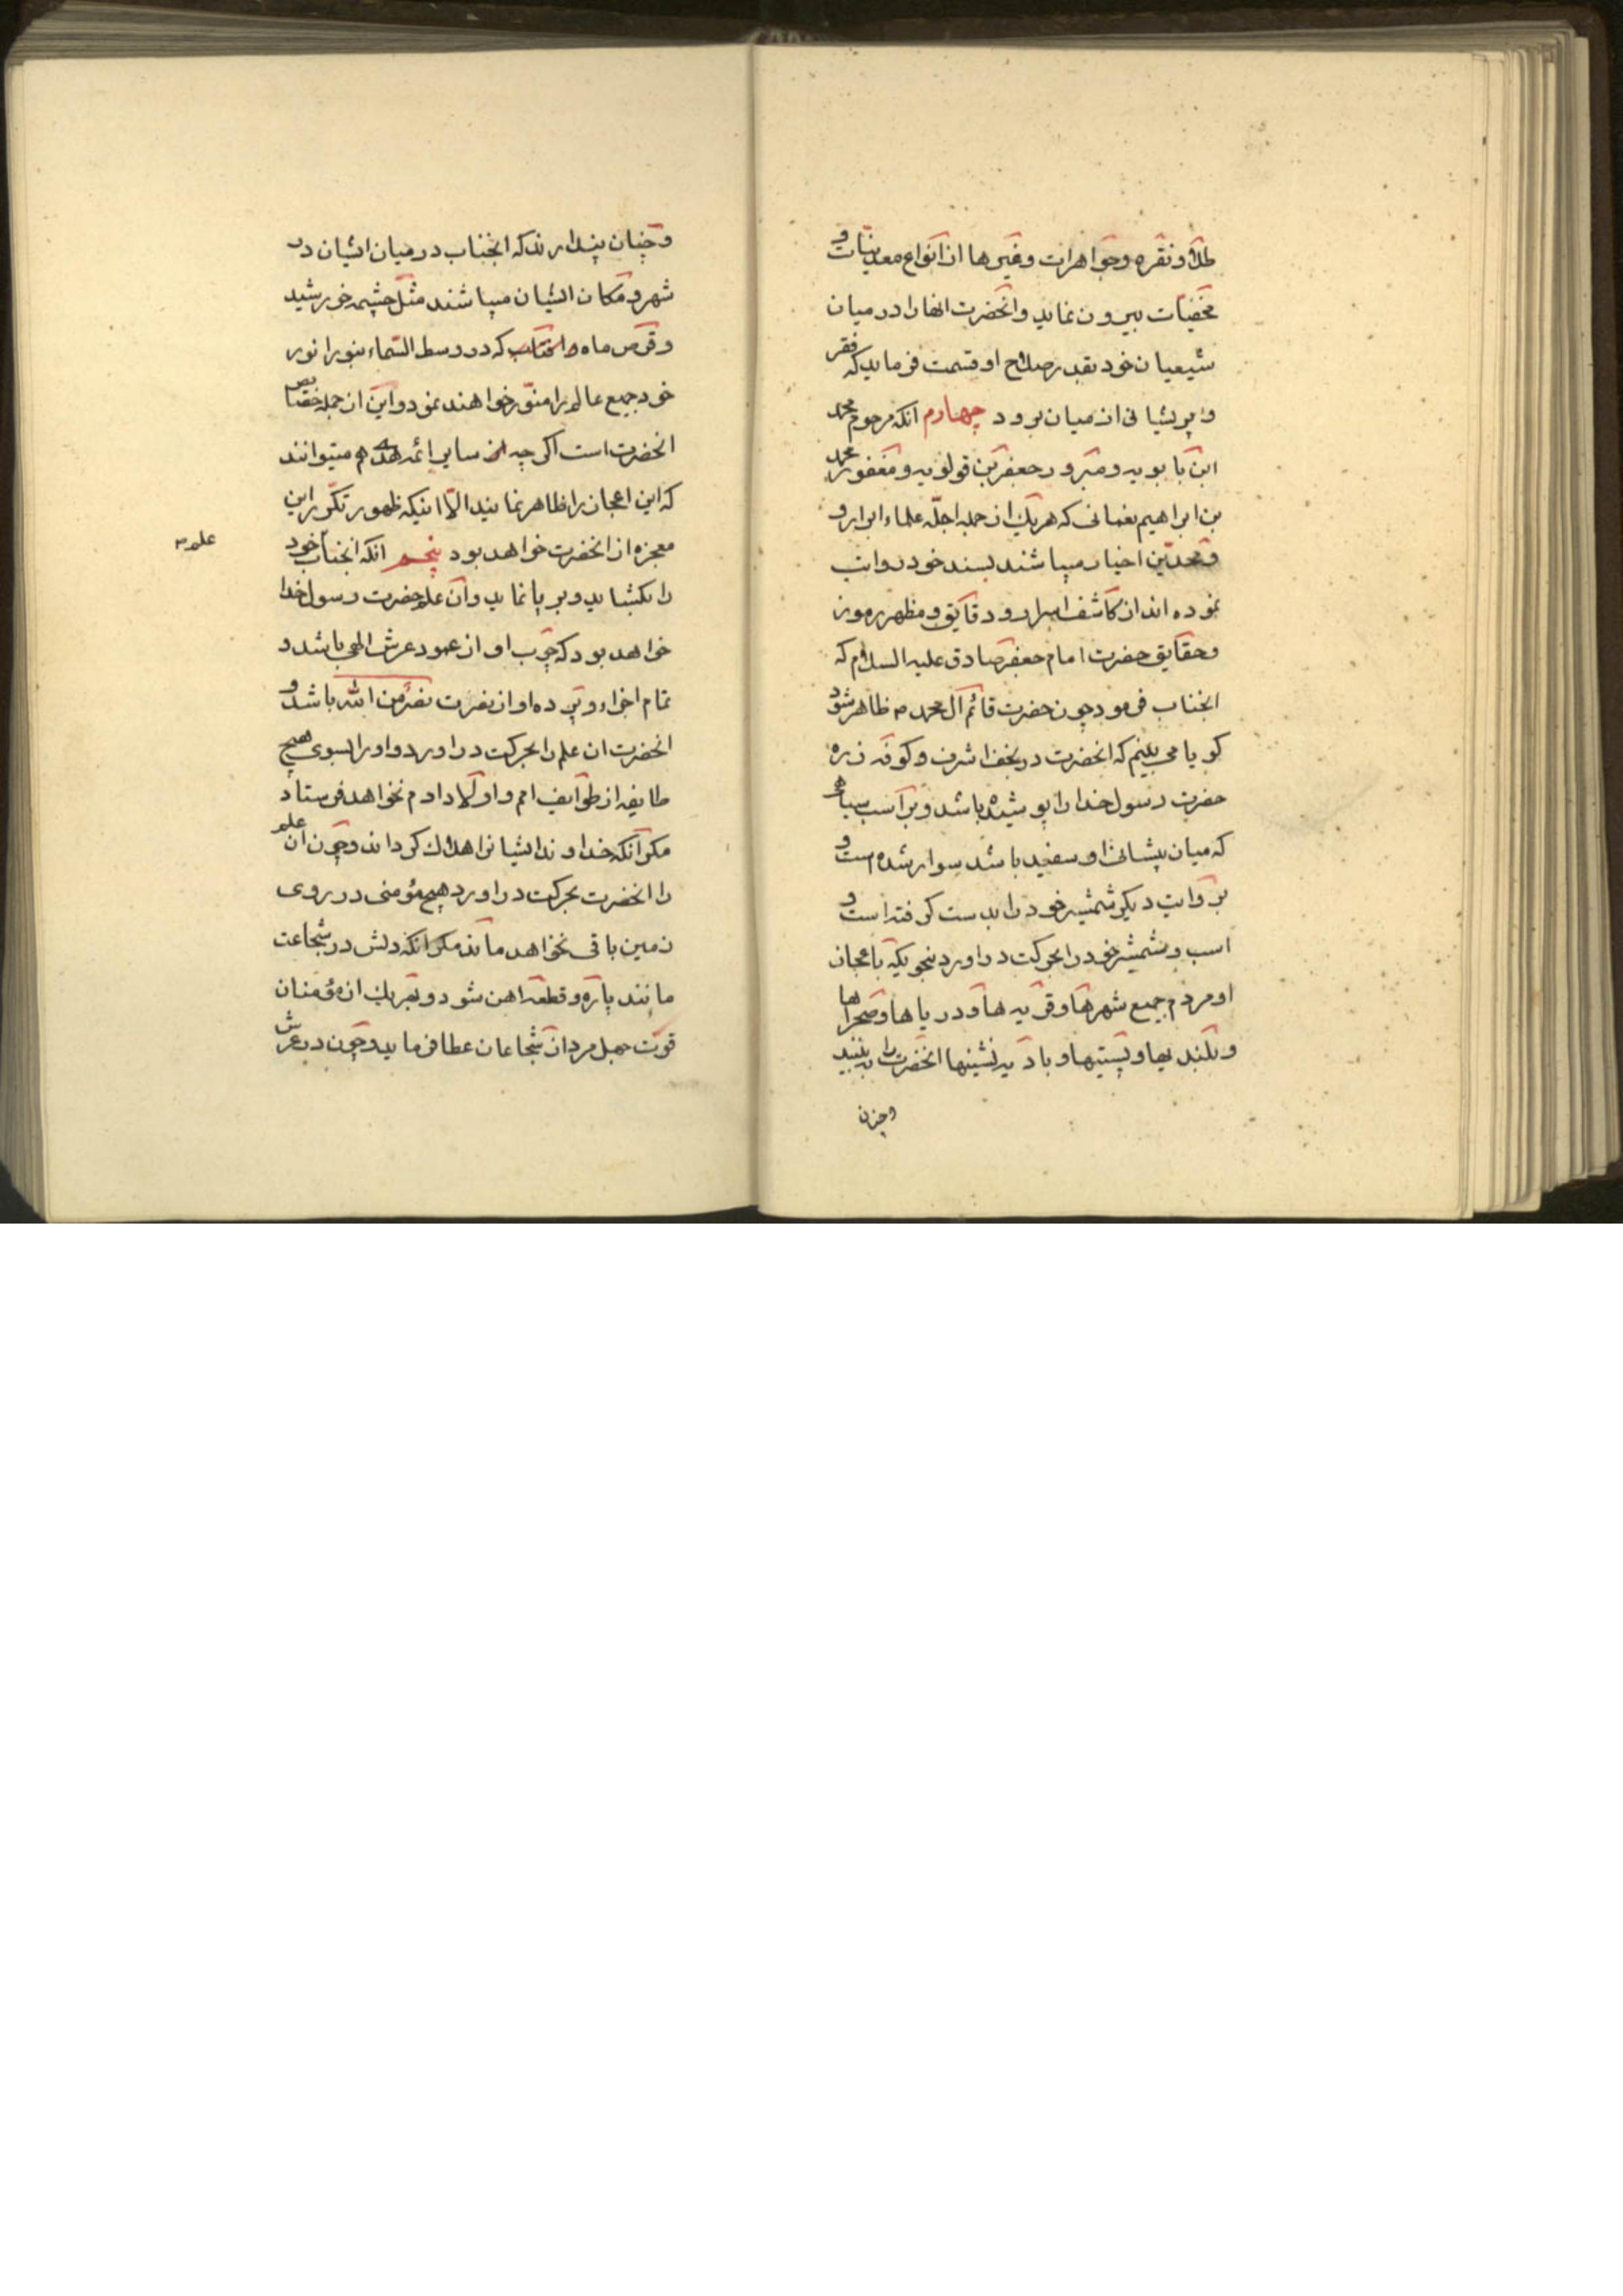 طلا و نقره و جواهرات و غیرها از انواع معدنیات و
مخفیات بیرون نماید و انحضرت انها را در میان
شیعیان خود بقدر صلاح او قسمت فرماید که فقر
و پریشانی از میان برود چهارم انکه مرحوم محمد
ابن بابویه و مبرور جعفر بن قولویه و مغفور محمد
بن ابراهیم نعمانی که هریک از جمله اجله علماء ابرار و
و محدثین اخیار میباشند بسند خود روایت
نموده اند از کاشف اسرار و دقایق و مظهر رموز
و حقایق حضرت امام جعفر صادق علیه السلام که
انجناب فرمود چون حضرت قائم آل محمد ص ظاهر شود
کویا می بینم که انحضرت در نجف اشرف و کوفه زره
حضرت رسول خدا را پوشیده باشد و بر اسب سیاهی
که میان پیشانی او سفید باشد سوار شده است و
بروایت دیکر شمشیر خود را بدست کرفته است و
اسب و شمشیر خود را بحرکت دراورد بنحویکه باعجاز
او مردم جمیع شهرها و قریه ها و دریاها و صحراها
و بلندیها و پستیها و بادیه نشینها انحضرت را به بینند
و چنان
و چنان پندارند که انجناب در میان ایشان در
شهر و مکان ایشان میباشند مثل چشمه خورشید
و قرص ماه و افتاب که در وسط السماء بنور انور
خود جمیع عالم را منور خواهند نمود و این از جمله خصایص
انحضرت است اکرچه از سایر ائمه هدی هم میتوانند
که این اعجاز را ظاهر نمایند الا اینکه ظهور تکرر این
معجزه از انحضرت خواهد بود پنجم انکه انجناب خود
علم ص
را بکشاید و برپا نماید و آن علم حضرت رسول خدا
خواهد بود که چوب او از عمود عرش الهی باشد و
تمام اجزاء و پرده او از نصرت نصر من الله باشد و
انحضرت ان علم را بحرکت دراورد و او را بسوی هیچ
طایفه از طوایف امم و اولاد ادم نخواهد فرستاد
مکر آنکه خداوند ایشانرا هلاک کرداند و چون ان علم
را انحضرت بحرکت دراورد هیچ مؤمنی در روی
زمین باقی نخواهد ماند مکر انکه دلش در شجاعت
مانند پاره و قطعه اهن شود و بهریک از مؤمنان
قوت چهل مرد از شجاعان عطا فرماید و چون در عرش